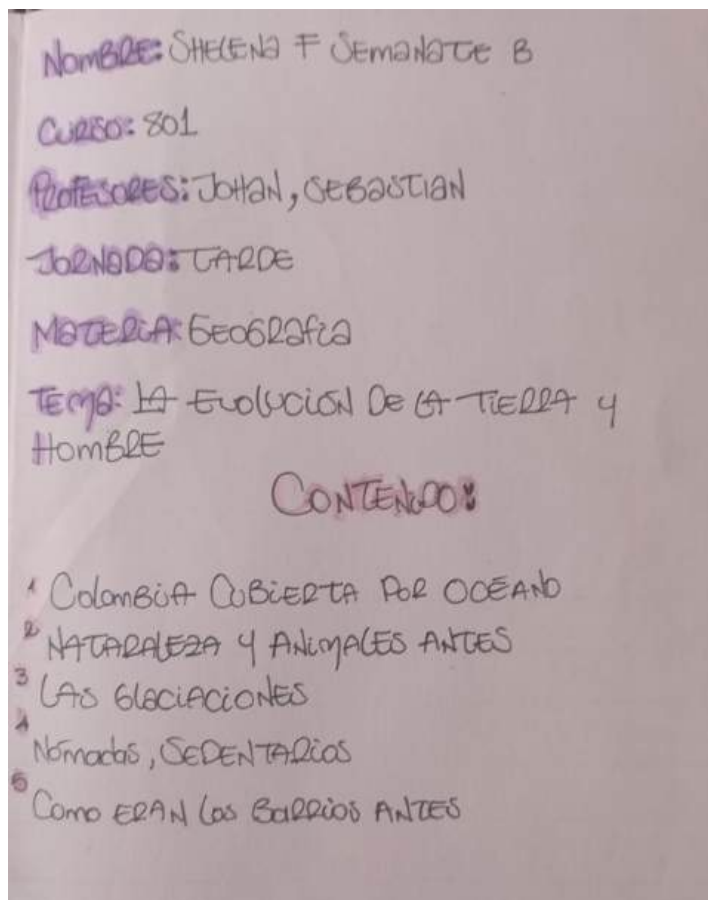 Nombre: Shelena F Semanate B
Curso: 801
Profesores: Johan, Sebastian
Jornada: Tarde
Materia: Geografia
Tema: La Evolucion De la Tierra y
Hombre
Contenido:
1 Colombia Cubierta Por Oceano
2 Nataraleza y Animales Antes
3 Las Glaciaciones
4 Nomadas, Sedentarios
5 Como eran los Barrios Antes